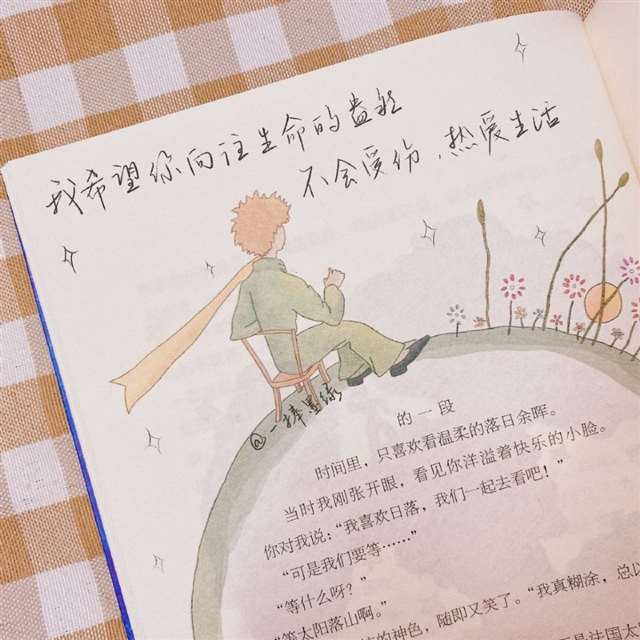 我希望你向往生命的盎然
不会受伤，热爱生活
@一捧星缘
的一段
时间里，只喜欢看温柔的落日余晖。
当时我刚张开眼，看见你洋溢着快乐的小脸。
你对我说：“我喜欢日落，我们一起去看吧！”
“可是我们要等……”
“等什么呀？”
“等太阳落山啊。”
的神色，随即又笑了。“我真糊涂，总以
是法国大